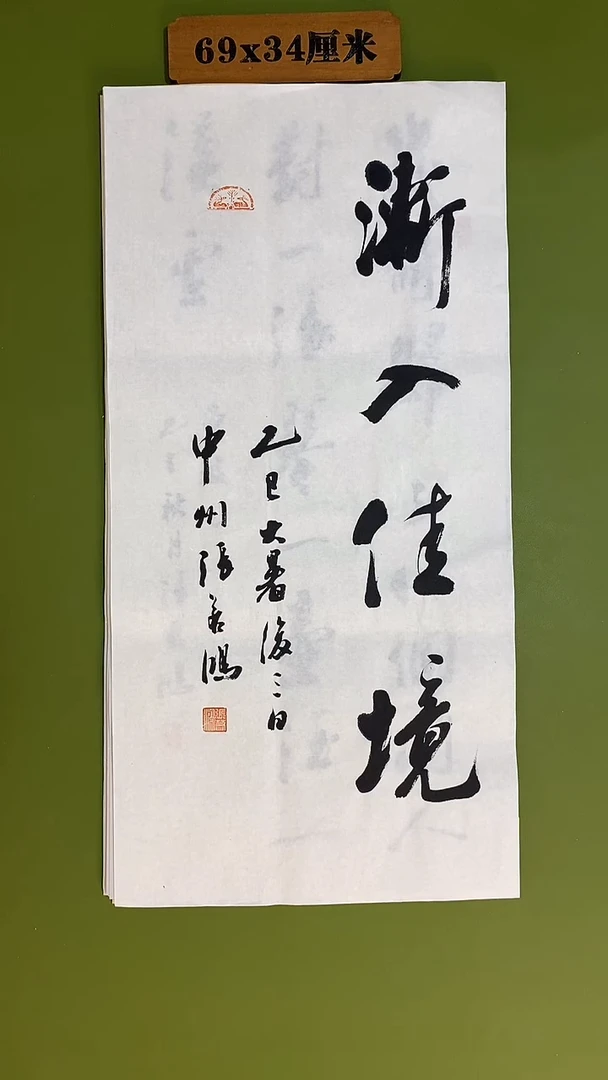 69x34厘米
漸入佳境
乙巳大暑後三日
中州張善鴻